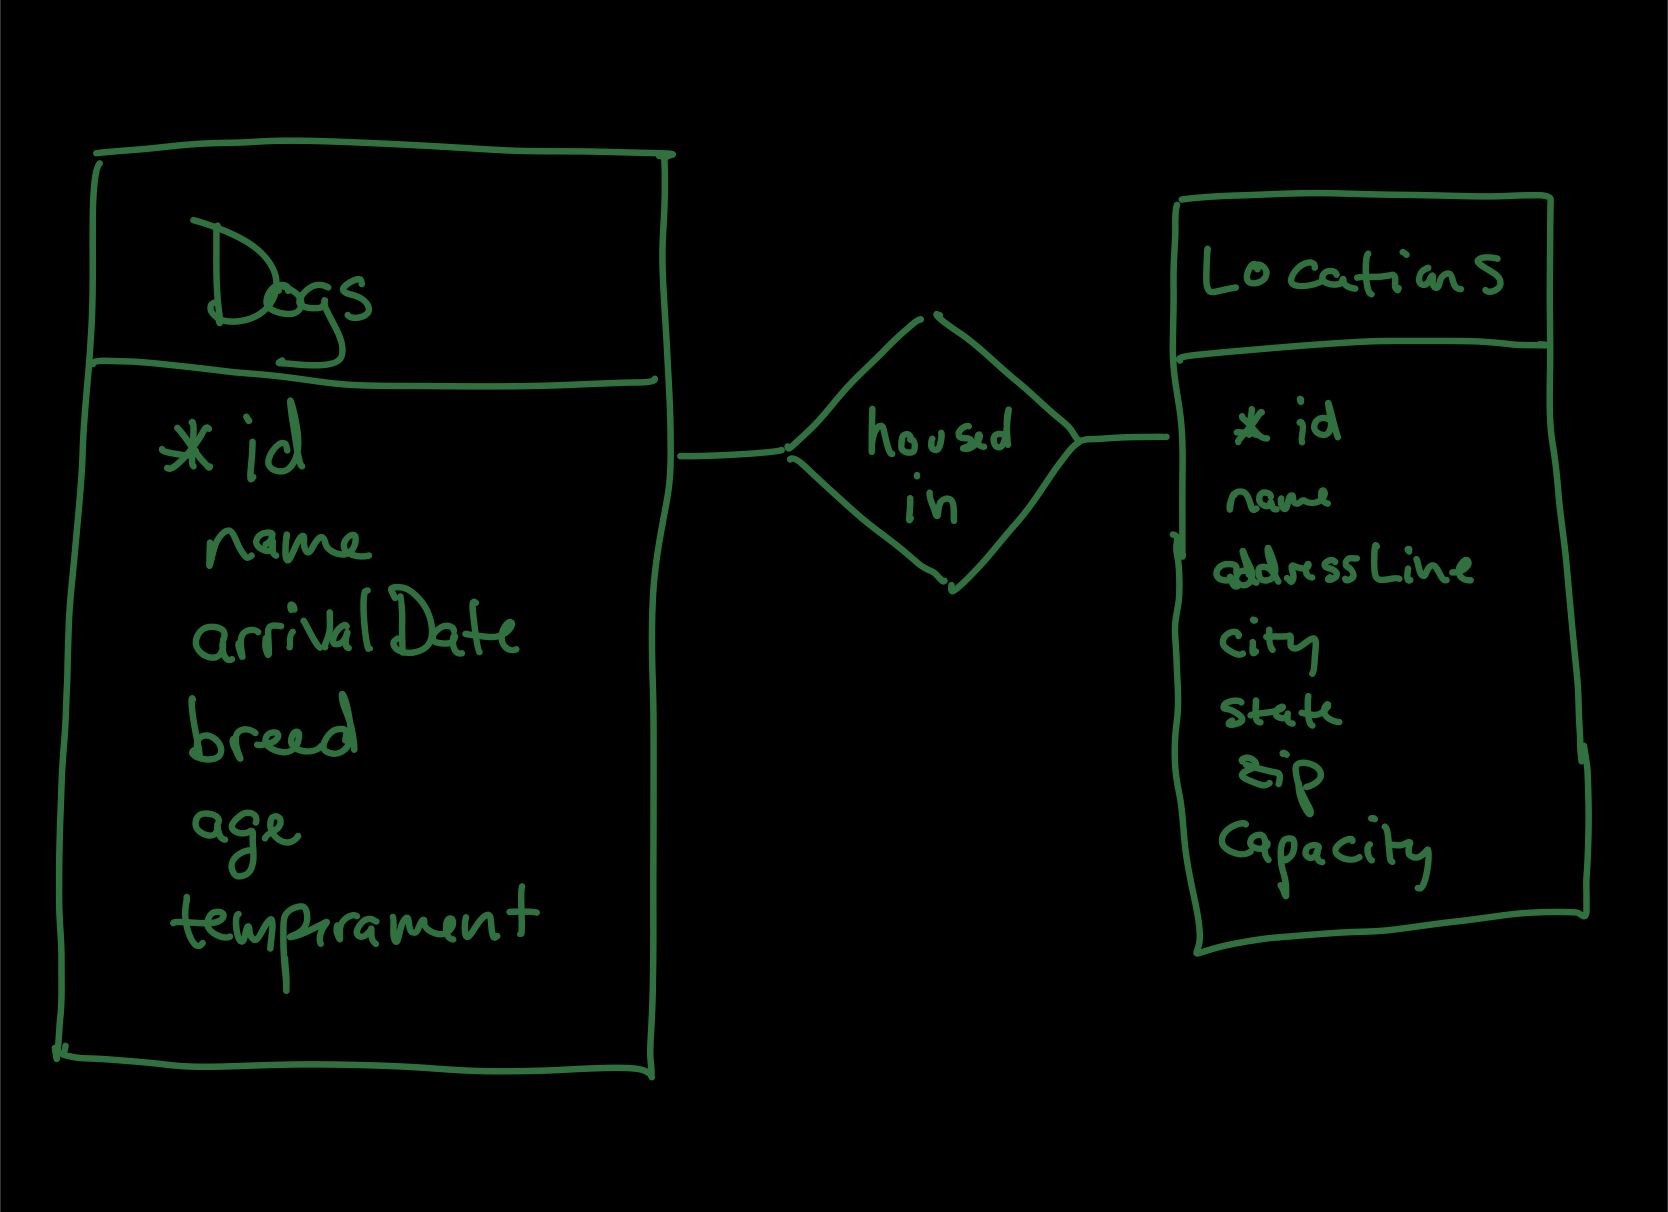 Dogs
* id
name
arrivalDate
breed
age
temprament
housed
in
Locations
* id
name
addressLine
city
state
zip
capacity